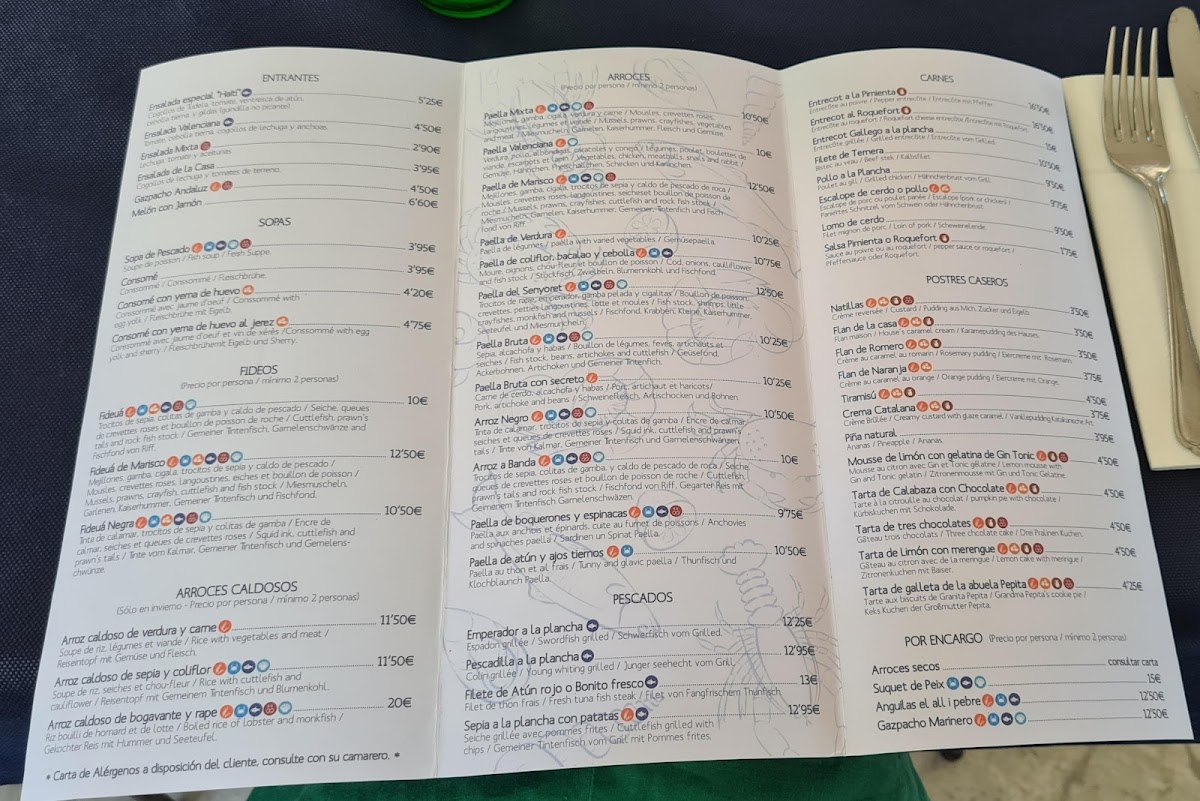 ENTRANTES
Ensalada especial "Haití" 5'25€
Cogollos de Tudela, tomate, ventresca de atún,
cebolla tierna y pildas (guindilla no picante).
Ensalada Valenciana 4'50€
Tomate, cebolla tierna, cogollos de lechuga y anchoas.
Ensalada Mixta 2'90€
Lechuga, tomate y aceitunas.
Ensalada de la Casa 3'95€
Cogollos de lechuga y tomates de terreno.
Gazpacho Andaluz 4'50€
Melón con Jamón 6'60€
SOPAS
Sopa de Pescado 3'95€
Soupe de poisson / Fish soup / Fesh Suppe.
Consomé 3'95€
Consommé / Consommé / Fleischbrühe.
Consomé con yema de huevo 4'20€
Consommé avec jaume d'oeuf / Conssommé with
egg yolk / Fleischbrühe mit Eigelb.
Consomé con yema de huevo al jerez 4'75€
Consommé avec jaume d'oeuf et vin de xérès /Consommé with egg
yolk and sherry / Fleischbrühemit Eigelb und Sherry.
FIDEOS
(Precio por persona / mínimo 2 personas)
Fideuá 10€
Trocitos de sepia, colitas de gamba y caldo de pescado / Seiche, queues
de crevettes roses et bouillon de poisson de roche / Cuttlefish, prawn's
tails and rock fish stock / Gemeiner Tintenfisch, Garnelenschwänze and
Fischfond von Riff.
Fideuá de Marisco 12'50€
Mejillones, gamba, cigala, trocitos de sepia y caldo de pescado /
Mousles, crevettes roses, langoustines, eiches et bouillon de poisson /
Mussels, prawns, crayfish, cuttlefish and fish stock / Miesmuscheln,
Garlenen, Kaiserhummer, Gemeiner Tintenfisch und Fischfond.
Fideuá Negra 10'50€
Tinta de calamar, trocitos de sepia y colitas de gamba / Encre de
calmar, seiches et queues de crevettes roses / Squid ink, cuttlefish and
prawn's tails / Tinte vom Kalmar, Gemeiner Tintenfisch und Gemelens-
chwünze.
ARROCES CALDOSOS
(Sólo en invierno - Precio por persona / mínimo 2 personas)
Arroz caldoso de verdura y carne 11'50€
Soupe de riz, légumes et viande / Rice with vegetables and meat /
Reisentopf mit Gemüse und Fleisch.
Arroz caldoso de sepia y coliflor 11'50€
Soupe de riz, seiches et chou-fleur / Rice with cuttlefish and
cauliflower / Reisentopf mit Gemeinem Tintenfisch und Blumenkohl.
Arroz caldoso de bogavante y rape 20€
Riz bouilli de homard et de lotte / Boiled rice of lobster and monkfish /
Gekochter Reis mit Hummer und Seeteufel.
* Carta de Alérgenos a disposición del cliente, consulte con su camarero. *
ARROCES
(Precio por persona / mínimo 2 personas)
Paella Mixta 10'50€
Mejillones, gamba, cigala, verdura y carne / Mousles, crevettes roses,
langoustines, légumes et viande / Mussels, prawns, crayfishes, vegetables
and meat / Miesmuscheln, Garnelen, Kaiserhummer, Gemüse und Fleisch.
Paella Valenciana 10€
Verdura, pollo, albóndigas, caracoles y conejo / Légumes, poulet, boulettes de
viande, escarpots et lapin / Vegetables, chicken, meatballs, snails and rabbit /
Gemüse, Hähnchen, Fleischbällchen, Schecken und Kaninchen.
Paella de Marisco 12'50€
Mejillones, gamba, cigala, trocitos de sepia y caldo de pescado de roca /
Mousles, crevettes roses, langoustines, seicheset bouillon de poisson de
roche / Mussels, prawns, crayfishes, cuttlefish and rock fish stock /
Miesmucheln, Garnelen, Kaiserhumer, Gemeiner, Tintenfisch und Fisch
fond von Riff.
Paella de Verdura 10'25€
Paella de légumes / paella with varied vegetables / Gemüsepaella.
Paella de coliflor, bacalao y cebolla 10'75€
Moure, oignons, chou-fleur et bouillon de poisson / Cod, onions, cauliflower
and fish stock / Stockfisch, Zwielbeln, Blumenkohl und Fischfond.
Paella del Senyoret 12'50€
Trocitos de rape, emperador, gamba pelada y cigalitas / Bouillon de poisson,
crevettes, petites Langoustines, lotte et moules / Fish stock, shrimps, little
crayfishes, monkfish and mussels / Fischfond, Krabben, Kleine, Kaiserhummer,
Seeteufel und Miesmuscheln.
Paella Bruta 10'25€
Sepia, alcachofa y habas / Bouillon de légumes, feves, artichauts et
seiches / Fish stock, beans, artichokes and cuttlefish / Geüsefond,
Ackerbohnen, Artichoken und Gemeiner Tintenfich.
Paella Bruta con secreto 10'25€
Carne de cerdo, alcachofa y habas / Port, artichaut et haricots/
Pork, artichoke and beans / Schweinefleisch, Artischocken und Bohnen
Arroz Negro 10'50€
Tinta de calamar, trocitos de sepia y colitas de gamba / Encre de calmar
seiches et queues de crevettes roses / Squid ink, cuttlefish and prawn's
tails / Tinte von Kalmar, Gemeiner Tintenfisch und Garnelenschwänzen.
Arroz a Banda 10€
Trocitos de sepia, colitas de gamba, y caldo de pescado de roca / Seiche,
queues de crevettes roses et bouillon de poisson de roche / Cuttlefish,
prawn's tails and rock fish stock / Fischfond von Riff, Gegarter Reis mit
Gemeinem Tintenfisch Garnelenschwäzen.
Paella de boquerones y espinacas 9'75€
Paella aux anchois et épinards, cuite au fumet de poissons / Anchovies
and spinaches paella / Sardinen un Spinat Paella.
Paella de atún y ajos tiernos 10'50€
Paella au thon et ail frais / Tunny and glavic paella / Thunfisch und
Klochblaunch Paella.
PESCADOS
Emperador a la plancha 12'25€
Espadon grillée / Swordfish grilled / Schwerfisch vom Grilled.
Pescadilla a la plancha 12'95€
Colin grillée / Young whiting grilled / Junger seehecht vom Grill.
Filete de Atún rojo o Bonito fresco 13€
Filet de thon frais / Fresh tuna fish steak / Filet von Fangfrischem Thunfisch.
Sepia a la plancha con patatas 12'95€
Seiche grillée avec pommes frites / Cuttlefish grilled with
chips / Gemeiner Tintenfisch vom Grill mit Pommes frites.
CARNES
Entrecot a la Pimienta 16'50€
Entrecôte au poivre / Pepper entrecôte / Entrecôte mit Pfeffer.
Entrecot al Roquefort 16'50€
Entrecôte au roquefort / Roquefort cheese entrecôte /Entrecôte mit Roquefort.
Entrecot Gallego a la plancha 15€
Entrecôte grillée / Grilled entrecôte / Entrecôte vom Grilled.
Filete de Ternera 10'50€
Bistec au veau / Beef stek / Kalbsfilet.
Pollo a la Plancha 9'50€
Poulet au gril / Grilled chicken / Hähnchenbrust vom Grill.
Escalope de cerdo o pollo 9'75€
Escalope de porc ou poulet panée / Escalope (pork or chicken) /
Paniertes Schnitzel vom Schwein oder Hähnchenbrust.
Lomo de cerdo 9'50€
Filet mignon de porc / Loin of pork / Schweinelende.
Salsa Pimienta o Roquefort 1'75€
Sauce au poivre ou au roquefort / pepper sauce or roquefort /
Pfeffersauce oder Roquefort.
POSTRES CASEROS
Natillas 3'50€
Crème reversée / Custard / Pudding aus Mich, Zucker und Eigelb.
Flan de la casa 3'50€
Flan maison / House's caramel cream / Karamepudding des Hauses.
Flan de Romero 3'50€
Crème au caramel au romarin / Rosemary pudding / Eiercreme mit Rosmarin.
Flan de Naranja 3'75€
Crème au caramel au orange / Orange pudding / Eiercreme mit Orange.
Tiramisú 4'50€
Crema Catalana 3'75€
Crème Brûlée / Creamy custard with glaze caramel / Vanillepudding katalanische Art.
Piña natural 3'95€
Ananas / Pineapple / Ananas.
Mousse de limón con gelatina de Gin Tonic 4'50€
Mousse au citron avec Gin et Tonic gélatine / Lemon mousse with
Gin and Tonic gelatine / Zitronenmousse mit Gin und Tonic Gelatine.
Tarta de Calabaza con Chocolate 4'50€
Tarte a la citrouille au chocolat / pumpkin pie with chocolate /
Kürbiskuchen mit Schokolade.
Tarta de tres chocolates 4'50€
Gâteau trois chocolats / Three choclate cake / Drei Pralinen Kuchen.
Tarta de Limón con merengue 4'50€
Gâteau au citron avec de la meringue / Lemon cake with meringue /
Zitronenkuchen mit Baiser.
Tarta de galleta de la abuela Pepita 4'25€
Tarte aux biscuits de Granita Pepita / Grandma Pepita's cookie pie /
Keks Kuchen der Großmutter Pepita.
POR ENCARGO (Precio por persona / mínimo 2 personas)
Arroces secos consultar carta
Suquet de Peix 15€
Anguilas el all i pebre 12'50€
Gazpacho Marinero 12'50€